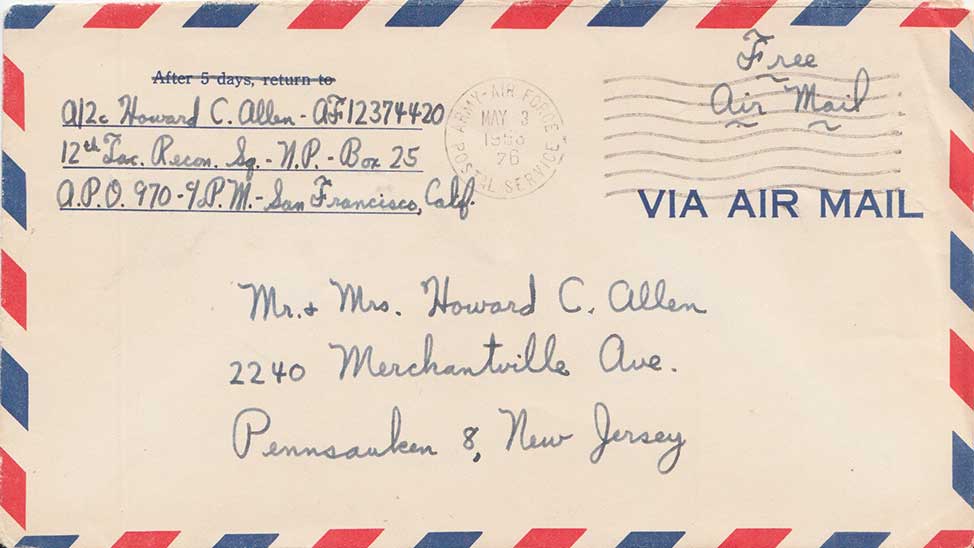 After 5 days, return to
A/2c Howard C. Allen - AF12374420
12th Tac. Recon. Sq. - N.P. - Box 25
A.P.O. 970 - % P.M. - San Francisco, Calif.
ARMY-AIR FORCE
POSTAL SERVICE
MAY 3
1953
76
Free
Air Mail
VIA AIR MAIL
Mr. & Mrs. Howard C. Allen
2240 Merchantville Ave.
Pennsauken 8, New Jersey